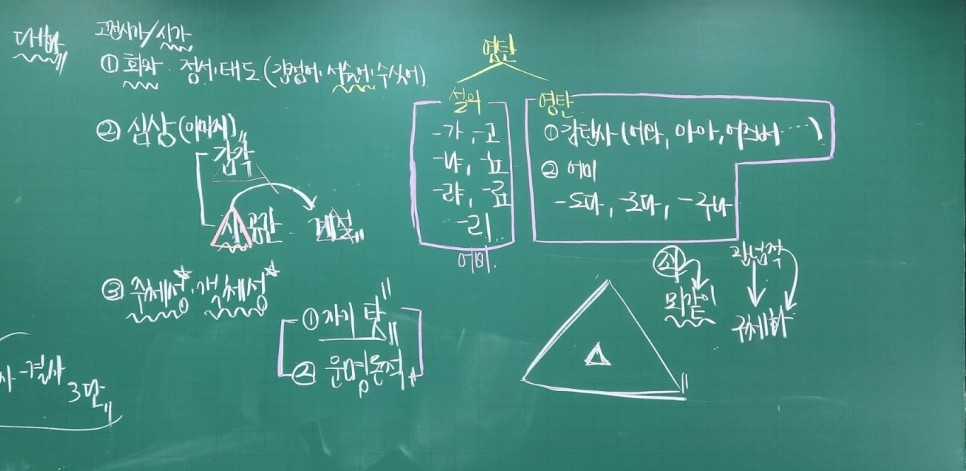 대화
고전시가/시가
① 화와 정서, 태도 (감정어, 서술어, 수식어)
② 심상 (이미지)
감각
시공간
계절
③ 주체성, 객체성
① 자기 탓
② 운명론적
3단
영탄
설의
-가, -고
-냐, -뇨
-랴, -료
-리
어미
영탄
① 감탄사 (어와, 아아, 어즈버 ……)
② 어미
-도다, -로다, -구나
뫼같이
관념적
구체화